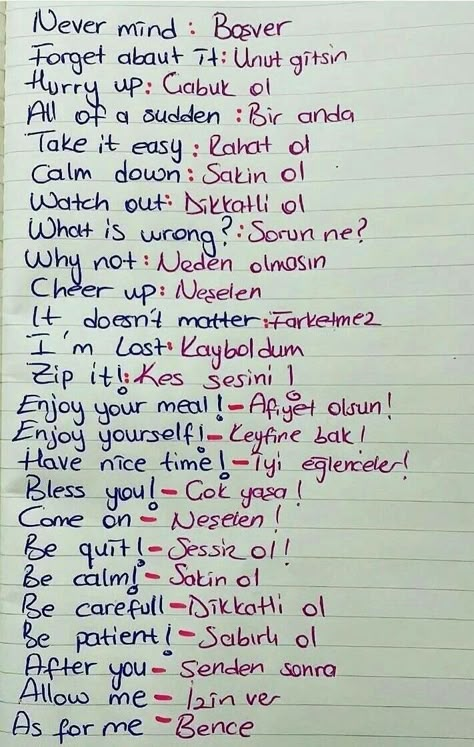 Never mind : Boşver
Forget abaut it: Unut gitsin
Hurry up: Çabuk ol
All of a sudden : Bir anda
Take it easy : Rahat ol
Calm down : Sakin ol
Watch out: Dikkatli ol
What is wrong? : Sorun ne?
Why not : Neden olmasın
Cheer up: Neşelen
It doesn't matter : Farketmez
I'm Lost: Kayboldum
Zip it!: Kes sesini !
Enjoy your meal ! - Afiyet olsun!
Enjoy yourself! - Keyfine bak !
Have nice time! - İyi eğlenceler!
Bless you! - Çok yaşa !
Come on - Neşelen !
Be quit! - Sessiz ol!
Be calm! - Sakin ol
Be carefull - Dikkatli ol
Be patient! - Sabırlı ol
After you - Senden sonra
Allow me - İzin ver
As for me - Bence